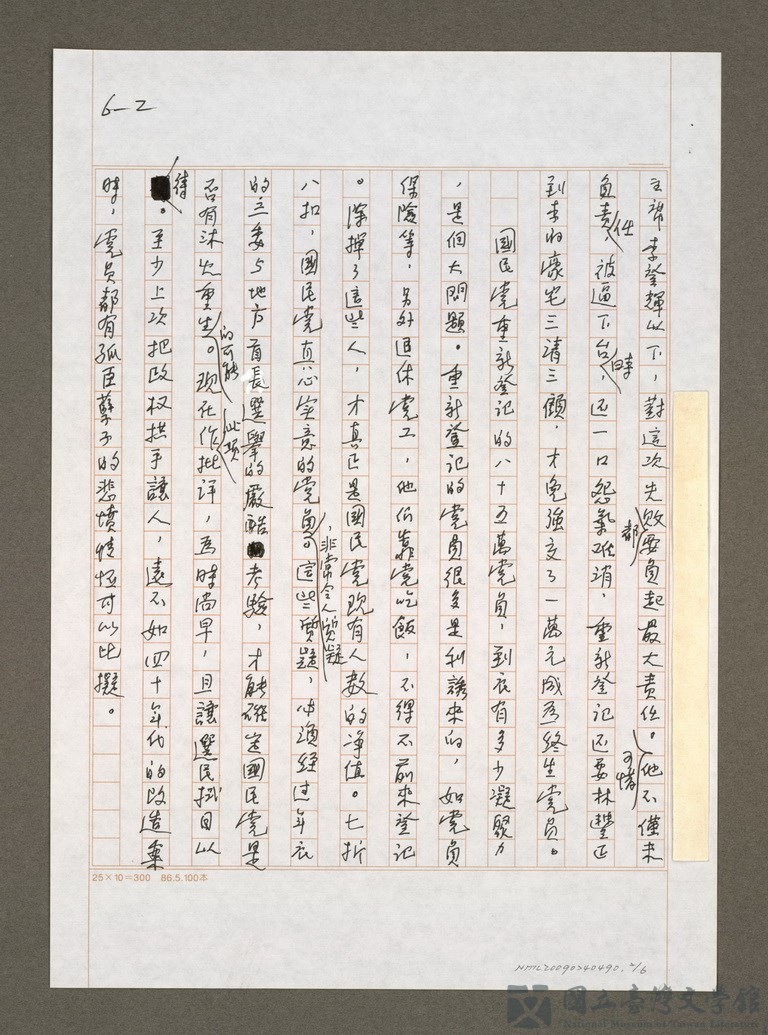 6-2
主席李登輝以下，對這次失敗都要負起最大責任。可惜他不僅未
負責任，被逼下台時，還一口怨氣难消，重新登記还要林豐正
到未归豪宅三請三顧，才勉強交了一萬元成為終生党員。
國民党重新登記的八十五萬党員，到底有多少凝聚力
，是個大問題。重新登記的党員很多是利誘來的，如党員
保險等，另外退休党工，他们靠党吃飯，不得不前來登記
。除掉了這些人，才真正是國民党現有人數的净值。七折
八扣，國民党真心实意的党員，非常令人質疑。這些質疑，必須經过年底
的立委与地方首長選舉的嚴酷考驗，才能確定國民党是
否有沐火重生的可能。現在作此項批評，為時尚早，且讓選民拭目以
待。至少上次把政权拱手讓人，遠不如四十年代的改造案
時，党員都有孤臣孽子的悲憤情恆可以比擬。
25×10＝300　86.5.100本
NML20090240490, 2/6
國立臺灣文學館
National Museum of Taiwan Literature